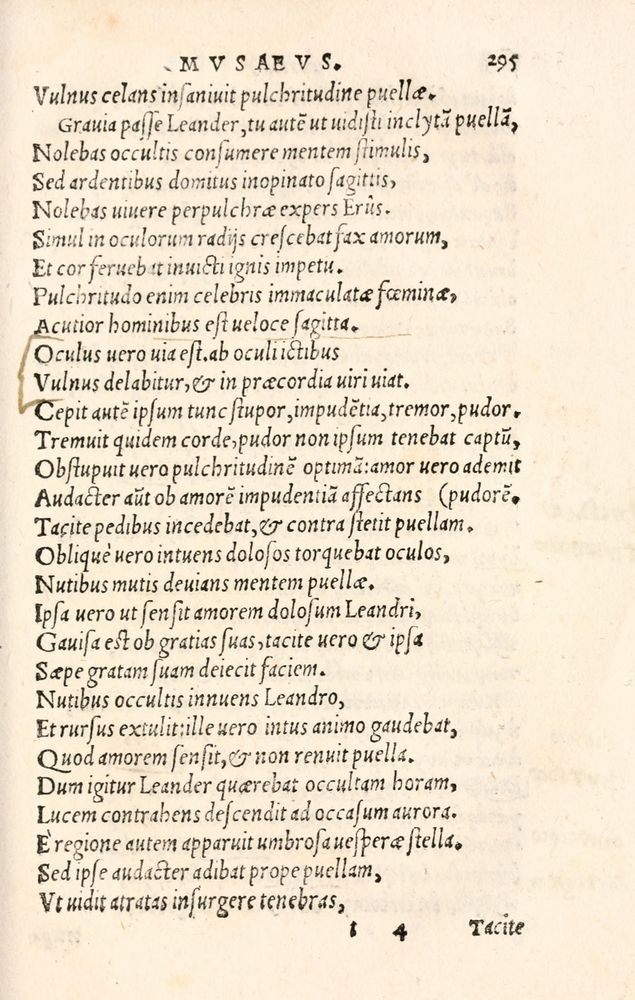 MVSAEVS. 295
Vulnus celans insaniuit pulchritudine puellæ.
Grauia passe Leander, tu autẽ ut uidisti inclytã puellã,
Nolebas occultis consumere mentem stimulis,
Sed ardentibus domitus inopinato sagittis,
Nolebas uiuere perpulchræ expers Erûs.
Simul in oculorum radijs crescebat fax amorum,
Et cor feruebat inuicti ignis impetu.
Pulchritudo enim celebris immaculatæ fœminæ,
Acutior hominibus est ueloce sagitta.
Oculus uero uia est. ab oculi ictibus
Vulnus delabitur, & in præcordia uiri uiat.
Cepit autẽ ipsum tunc stupor, impudẽtia, tremor, pudor.
Tremuit quidem corde, pudor non ipsum tenebat captũ,
Obstupuit uero pulchritudinẽ optimã: amor uero ademit
Audacter aũt ob amorẽ impudentiã affectans (pudorẽ.
Tacite pedibus incedebat, & contra stetit puellam.
Obliquè uero intuens dolosos torquebat oculos,
Nutibus mutis deuians mentem puellæ.
Ipsa uero ut sensit amorem dolosum Leandri,
Gauisa est ob gratias suas, tacite uero & ipsa
Sæpe gratam suam deiecit faciem.
Nutibus occultis innuens Leandro,
Et rursus extulit: ille uero intus animo gaudebat,
Quod amorem sensit, & non renuit puella.
Dum igitur Leander quærebat occultam horam,
Lucem contrahens descendit ad occasum aurora.
È regione autem apparuit umbrosa uesperæ stella.
Sed ipse audacter adibat prope puellam,
Vt uidit atratas insurgere tenebras,
t 4 Tacite